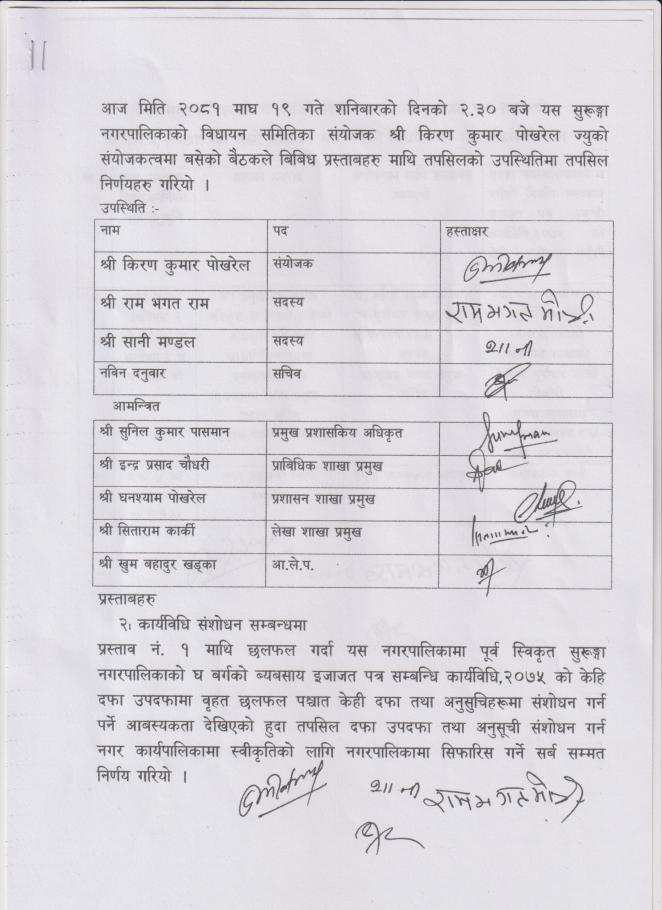 11
आज मिति २०८१ माघ १९ गते शनिबारको दिनको २.३० बजे यस सुरूङ्गा
नगरपालिकाको विधायन समितिका संयोजक श्री किरण कुमार पोखरेल ज्युको
संयोजकत्वमा बसेको बैठकले बिबिध प्रस्ताबहरु माथि तपसिलको उपस्थितिमा तपसिल
निर्णयहरु गरियो ।
उपस्थिति :-
नाम पद हस्ताक्षर
श्री किरण कुमार पोखरेल संयोजक
श्री राम भगत राम सदस्य राम भगत मोची
श्री सानी मण्डल सदस्य सानी
नविन दनुबार सचिव
आमन्त्रित
श्री सुनिल कुमार पासमान प्रमुख प्रशासकिय अधिकृत
श्री इन्द्र प्रसाद चौधरी प्राविधिक शाखा प्रमुख
श्री घनश्याम पोखरेल प्रशासन शाखा प्रमुख
श्री सिताराम कार्की लेखा शाखा प्रमुख
श्री खुम बहादुर खड्का आ.ले.प.
प्रस्ताबहरु
२। कार्यविधि संशोधन सम्बन्धमा
प्रस्ताव नं. १ माथि छलफल गर्दा यस नगरपालिकामा पूर्व स्विकृत सुरूङ्गा
नगरपालिकाको घ बर्गको ब्यबसाय इजाजत पत्र सम्बन्धि कार्यविधि,२०७५ को केहि
दफा उपदफामा वृहत छलफल पश्चात केही दफा तथा अनुसुचिहरूमा संशोधन गर्न
पर्ने आबस्यकता देखिएको हुदा तपसिल दफा उपदफा तथा अनुसूची संशोधन गर्न
नगर कार्यपालिकामा स्वीकृतिको लागि नगरपालिकामा सिफारिस गर्ने सर्ब सम्मत
निर्णय गरियो ।
सानी राम भगत मोची